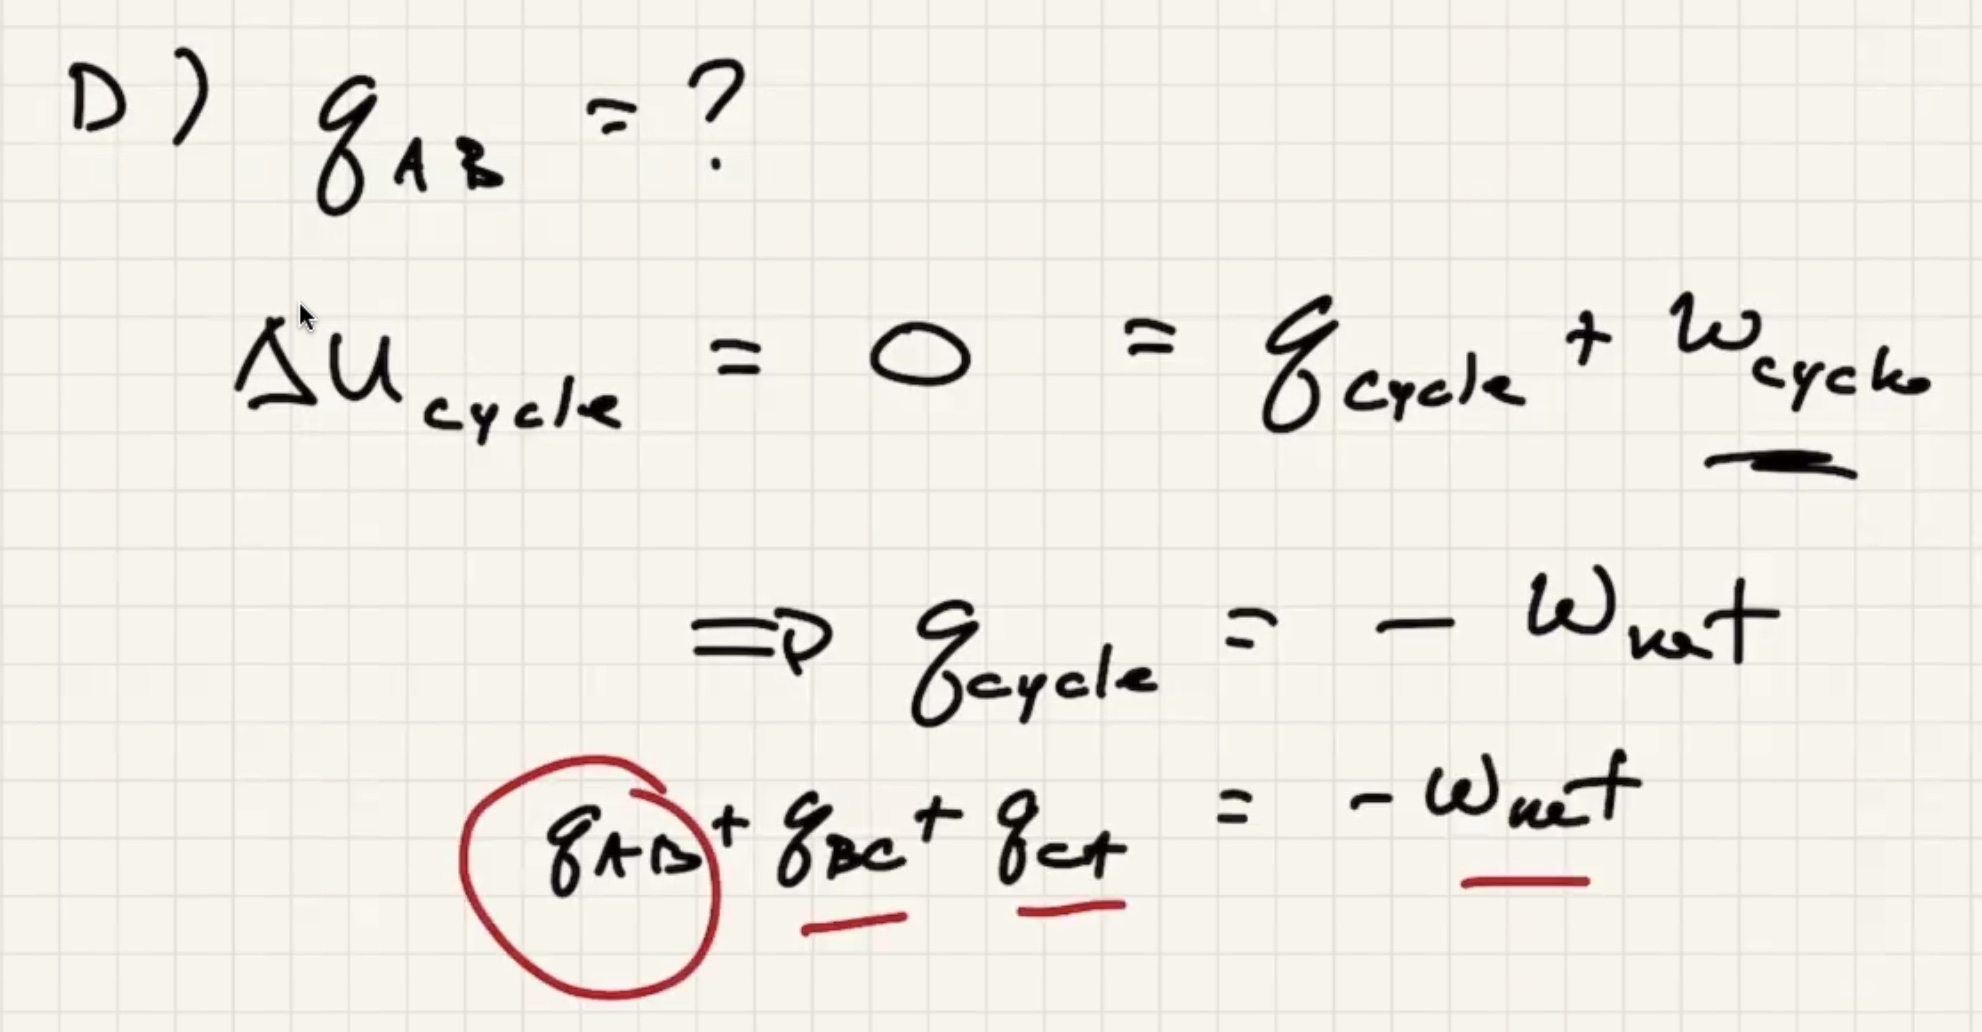 D) q_AB = ?
ΔU_cycle = 0 = q_cycle + w_cycle
⇒ q_cycle = - w_net
q_AB + q_BC + q_CA = - w_net